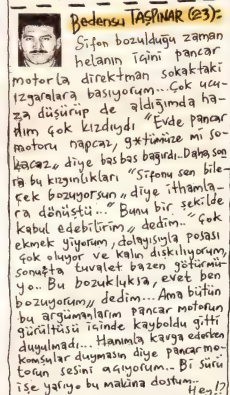 Bedensu TAŞPINAR (23):-
Sifon bozulduğu zaman
helanın içini pancar
motorla direktman sokaktaki
ızgaralara basıyorum... Çok ucu-
za düşürüp de aldığımda ha-
nım çok kızdıydı "Evde pancar
motoru napcaz, g*tümüze mi so-
kacaz" diye bas bas bağırdı.. Daha son
ra bu kızgınlıkları "Sifonu sen bile-
rek bozuyorsun" diye ithamla-
ra dönüştü..." Bunu bir şekilde
kabul edebilirim" dedim.. "Çok
ekmek yiyorum, dolayısıyla posası
çok oluyor ve kalın dışkılıyorum,
sonuçta tuvalet bazen götürmü-
yo.. Bu bozukluksa, evet ben
bozuyorum" dedim... Ama bütün
bu argümanlarım pancar motorun
gürültüsü içinde kayboldu gitti
duyulmadı... Hanımla kavga ederken
komşular duymasın diye pancar mo-
torun sesini açıyorum... Bi sürü
işe yarıyo bu makina dostum..
Hey!?